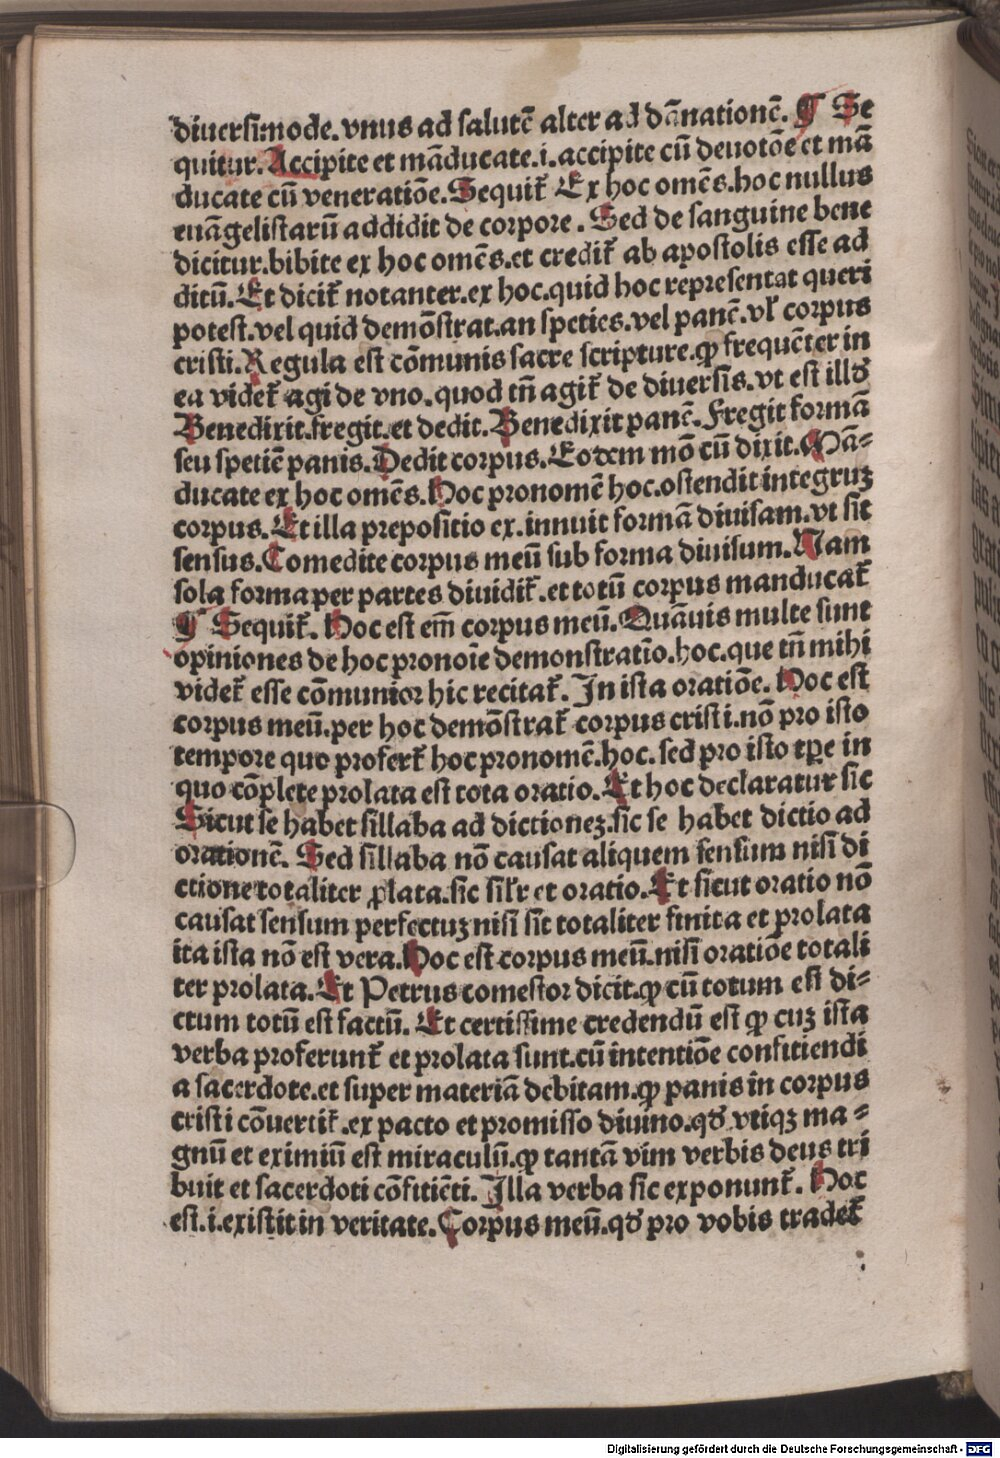 diuersimode. vnus ad salutē alter ad dānationē. ¶ Se
quitur. Accipite et māducate. i. accipite cū deuotōe et mā
ducate cū veneratiōe. Sequit᷑ Ex hoc omēs. hoc nullus
euāgelistarū addidit de corpore. Sed de sanguine bene
dicitur. bibite ex hoc omēs. et credit᷑ ab apostolis esse ad
ditū. Et dicit᷑ notanter. ex hoc. quid hoc representat queri
potest. vel quid demōstrat. an speties. vel panē. vl̓ corpus
cristi. Regula est cōmunis sacre scripture. ꝙ frequēter in
ea videt᷑ agi de vno. quod tñ agit᷑ de diuersis. vt est illꝺ
Benedixit. fregit. et dedit. Benedixit panē. Fregit formā
seu spetiē panis. Dedit corpus. Eodem mō cū dixit. Mā-
ducate ex hoc omēs. Hoc pronomē hoc. ostendit integruꝫ
corpus. Et illa prepositio ex. innuit formā diuisam. vt sit
sensus. Comedite corpus meū sub forma diuisum. Nam
sola forma per partes diuidit᷑. et totū corpus manducat᷑
¶ Sequit᷑. Hoc est em̄ corpus meū. Quāuis multe sunt
opiniones de hoc pronoīe demonstratīo. hoc. que tñ mihi
videt᷑ esse cōmunior hic recitat᷑. In ista oratiōe. Hoc est
corpus meū. per hoc demōstrat᷑ corpus cristi. nō pro isto
tempore quo profert᷑ hoc pronomē. hoc. sed pro isto tꝑe in
quo cōplete prolata est tota oratio. Et hoc declaratur sic
Sicut se habet sillaba ad dictionez. sic se habet dictio ad
orationē. Sed sillaba nō causat aliquem sensum nisi di
ctione totaliter ꝓlata. sic sil̓r et oratio. Et sicut oratio nō
causat sensum perfectuꝫ nisi sit totaliter finita et prolata
ita ista nō est vera. Hoc est corpus meū. nisi oratiōe totali
ter prolata. Et Petrus comestor dicit. ꝙ cū totum est di-
ctum totū est factū. Et certissime credendū est ꝙ cuꝫ ista
verba proferunt᷑ et prolata sunt. cū intentiōe confitiendi
a sacerdote. et super materiā debitam. ꝙ panis in corpus
cristi cōuertit᷑. ex pacto et promisso diuino. qꝺ vtiqꝫ ma-
gnū et eximiū est miraculū. ꝙ tantā vim verbis deus tri
buit et sacerdoti cōfitiēti. Illa verba sic exponunt᷑. Hoc
est. i. existit in veritate. Corpus meū. qꝺ pro vobis tradet᷑
Digitalisierung gefördert durch die Deutsche Forschungsgemeinschaft - DFG